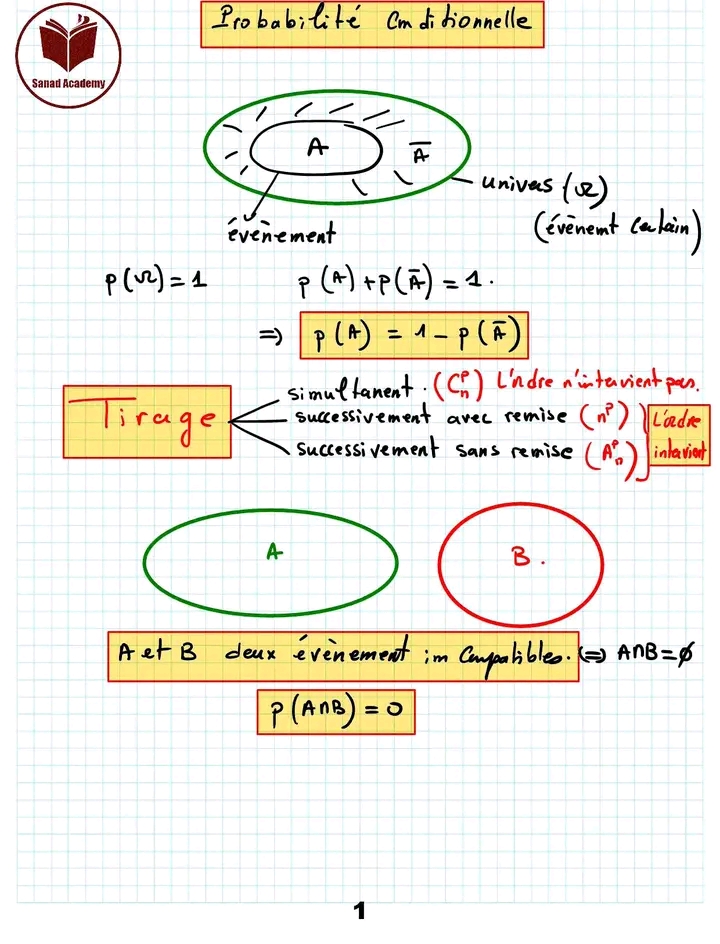 Probabilité Conditionnelle
Sanad Academy
A
Ā
univers (Ω)
(évènemt Certain)
évènement
p(Ω) = 1
p(A) + p(Ā) = 1.
⇒ p(A) = 1 - p(Ā)
Tirage
simultanent. (Cₙᵖ) L'ordre n'intervient pas.
successivement avec remise (nᵖ)
L'ordre
successivement sans remise (Aₙᵖ)
intervient
A
B.
A et B deux évènement imCompatibles. ⇔ A∩B=∅
p(A∩B) = 0
1